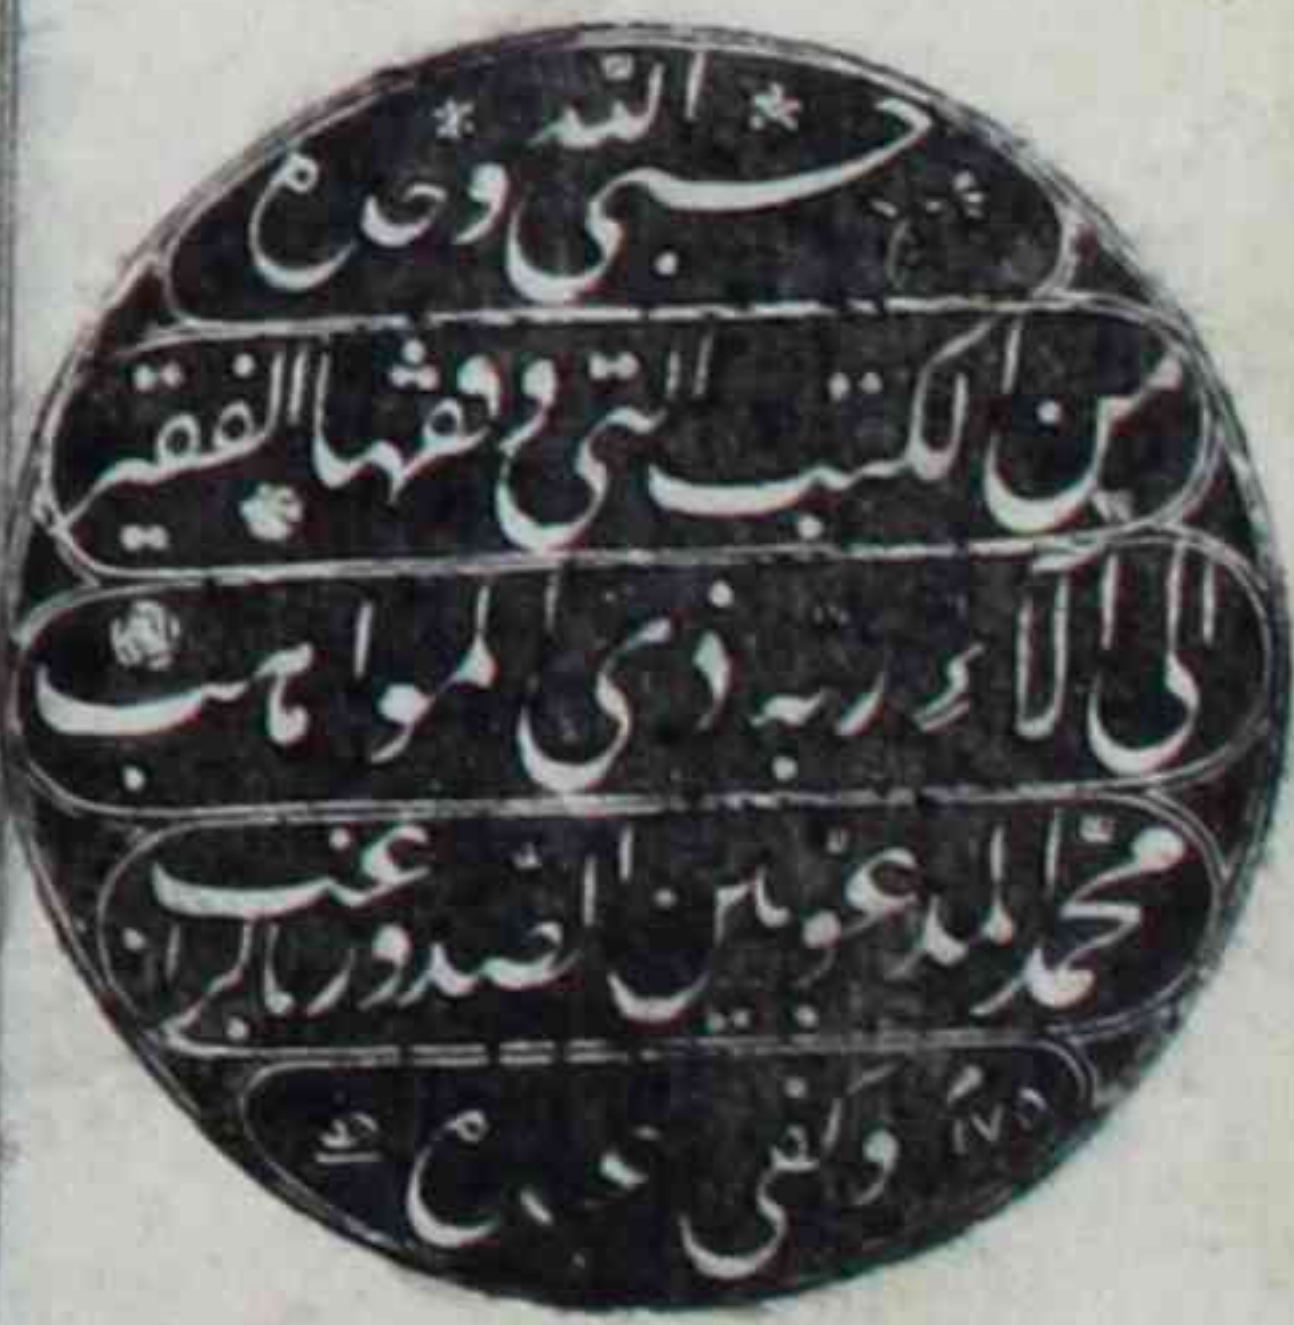 حسبي الله وحده
من الكتب التي وقفها الفقير
الى آلاء ربه ذي المواهب
محمد المدعو بين الصدور بالراغب
وكفى